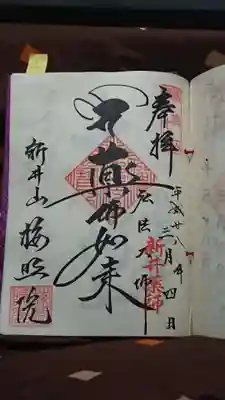 奉拝
平成廿八年三月四日
新井薬師
弘法大師
薬師如来
新井山 梅照院